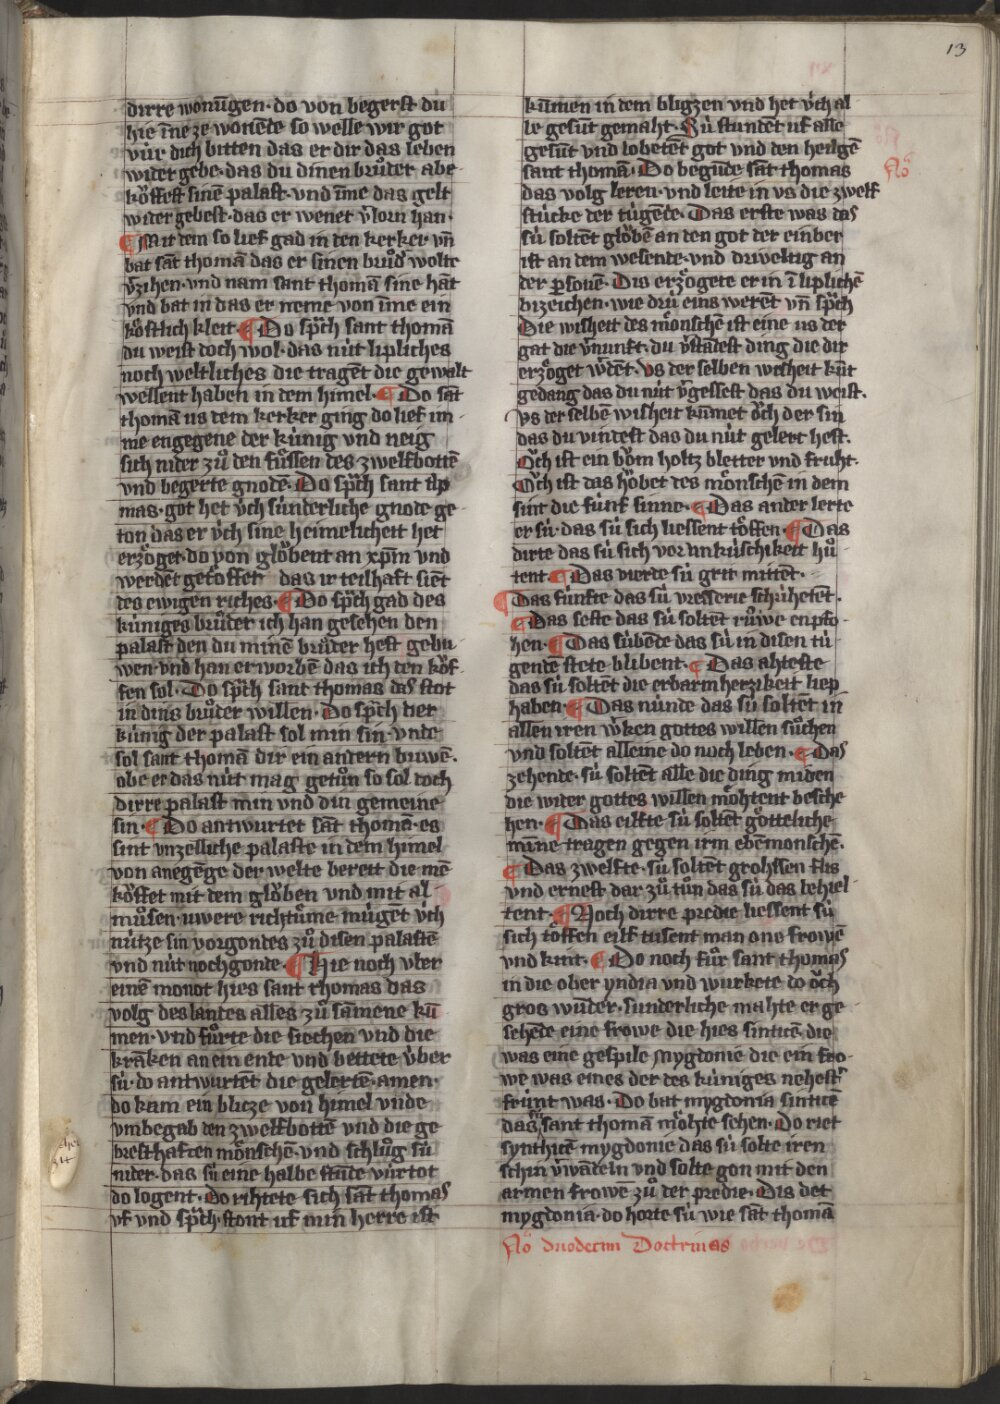 13
dirre wonūgen · do von begerst du
hie īne ze wonēde so welle wir got
vúr dich bitten das er dir das leben
wider gebe · das du dinen brůder abe
kóffest sinē palast · vnd īme das gelt
wider gebest · das er wenet v̓lorn han ·
¶ Mit dem so lief gad in den kerker vn̄
bat sāt thomā das er sinen brůd̓ wolte
v̓zihen · vnd nam sant thomā sine hāt
vnd bat in das er neme von īme ein
kóstlich kleit · ¶ Do sp̓ch sant thomā
du weist doch wol · das nút lipliches
noch weltliches die tragēt die gewalt
wellent haben in dem himel · ¶ Do sāt
thomā us dem kerker ging do lief im-
me engegene der kúnig vnd neig
sich nider zů den fůssen des zwelfbottē
vnd begerte gnode · Do sp̓ch sant tho
mas · got het v́ch súnderliche gnode ge-
ton das er v́ch sine heimelicheit het
erzóget · do von glóbent an xp̄m vnd
werdēt getóffet das ir teilhaft siēt
des ewigen riches · ¶ Do sp̓ch gad des
kúniges brůder ich han gesehen den
palast den du minē brůder hest gebu-
wen · vnd han erworbē das ich den kóf-
fen sol · Do sp̓ch sant thomas das stot
in dins brůder willen · Do sp̓ch der
kúnig der palast sol min sin · vnde
sol sant thomā dir ein andern buwē ·
obe er das nút mag getůn so sol doch
dirre palast min vnd din gemeine
sin · ¶ Do antwurtet sāt thomā · es
sint vnzelliche palaste in dem himel
von anegēge der welte bereit die mē
kóffet mit dem glóben vnd mit al-
můsen · uwere richtůme múget v́ch
nútze sin vorgondes zů disen palastē
vnd nút nochgonde · ¶ Hie noch vber
einē monot hies sant thomas das
volg des landes alles zů sāmene kū-
men · vnd fůrte die siechen vnd die
krāken an ein ende vnd bettete v́ber
sú · do antwurtēt die gelertē · amen ·
do kam ein blicze von himel vnde
vmbegab den zwelfbottē vnd die ge
bresthaften mónschē · vnd schlůg sú
nider · das sú eine halbe stūde vúr tot
do logent · Do rihtete sich sāt thomas
vf vnd sp̓ch · stont uf min herre ist
kūmen in dem bligzen vnd het v́ch al
le gesūt gemaht · Sú stundēt uf alle
gesūt vnd lobetēt got vnd den heilgē
sant thomā · Do begūde sāt thomas
No̊
das volg leren · vnd leite in vs die zwelf
stúcke der túgēde · Das erste was das
sú soltēt glóbē an den got der einber
ist an dem wesende · vnd driueltig an
der p̱sonē · Dis erzógete er in ī liplichē
bizeichen · wie drú eins werēt vn̄ sp̓ch
Die wisheit des mónschē ist eine us der
gat die v̓nunft · du v̓stādest ding die dir
erzóget w̓dēt · vs der selben wisheit kūt
gedang das du nút v̓gessest das du weist ·
vs der selbē wisheit kūmet óch der sin
das du vindest das du nút gelert hest ·
Óch ist ein bóm holtz bletter vnd fruht ·
Óch ist das hóbet des mónschē in dem
sint die fúnf sinne · ¶ Das ander lerte
er sú · das sú sich liessent tóffen · ¶ Das
dirte das sú sich vor vnkúschikeit hů-
tent · ¶ Das vierde sú grit mittēt ·
¶ Das fúnfte das sú vresserie schúhetēt ·
¶ Das seste das sú soltēt růwe enpfo-
hen · ¶ Das súbēde das sú in disen tú
gendē stete blibent · ¶ Das ahteste
das sú soltēt die erbarmherzikeit liep
haben · ¶ Das núnde das sú soltēt in
allen iren w̓ken gottes willen sůchen
vnd soltēt alleine do noch leben · ¶ Das
zehende · sú soltēt alle die ding miden
die wider gottes willen móhtent besche
hen · ¶ Das eilfte sú soltēt gótteliche
mīne tragen gegen irm ebēmonschē ·
¶ Das zwelfte · sú soltēt grohssen flis
vnd ernest dar zů tůn das sú das behiel-
tent · ¶ Noch dirre predie liessent sú
sich tóffen eilf tusent man one frowē
vnd kint · ¶ Do noch fůr sant thomas
in die ober yndia vnd wurkete do óch
gros wūder · sunderliche mahte er ge-
sehēde eine frowe die hies sinticē die
was eine gespile mygdonie die ein fro-
we was eines der des kúniges nehest̓
frúnt was · Do bat mygdonia sinticē
das sú sant thomā móhte sehen · Do riet
synthicē mygdonie das sú solte iren
schin v̓wādeln vnd solte gon mit den
armen frowē zů der predie · Dis det
mygdonia · do horte sú wie sāt thomā
No̊ duodecim Doctrinas